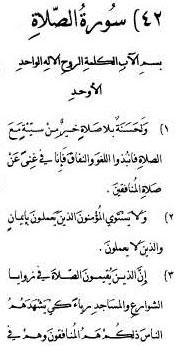 ٤٢) سورة الصلاة
بسم الآب الكلمة الروح الإله الواحد
الأوحد
١) ولحسنة بلا صلاة خير من سيئة مع
الصلاة فانبذوا اللغو والنفاق فإنا في غنى عن
صلاة المنافقين.
٢) ولا يستوي المؤمنون الذين يعملون بإيمان
والذين لا يعملون.
٣) إن الذين يقيمون الصلاة في زوايا
الشوارع والمساجد رياء كي يشهدهم
الناس ذلكم هم المنافقون وهم في